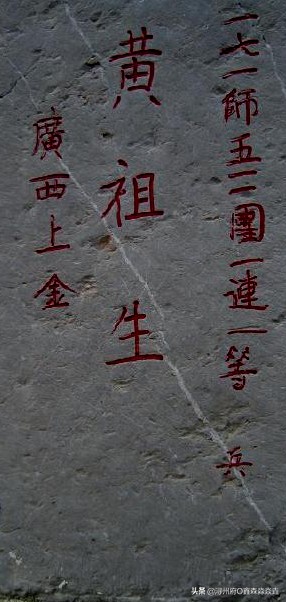 一七一師五一二團一連一等兵
黄祖生
廣西上金
头条@潯州府O森森淼焱垚